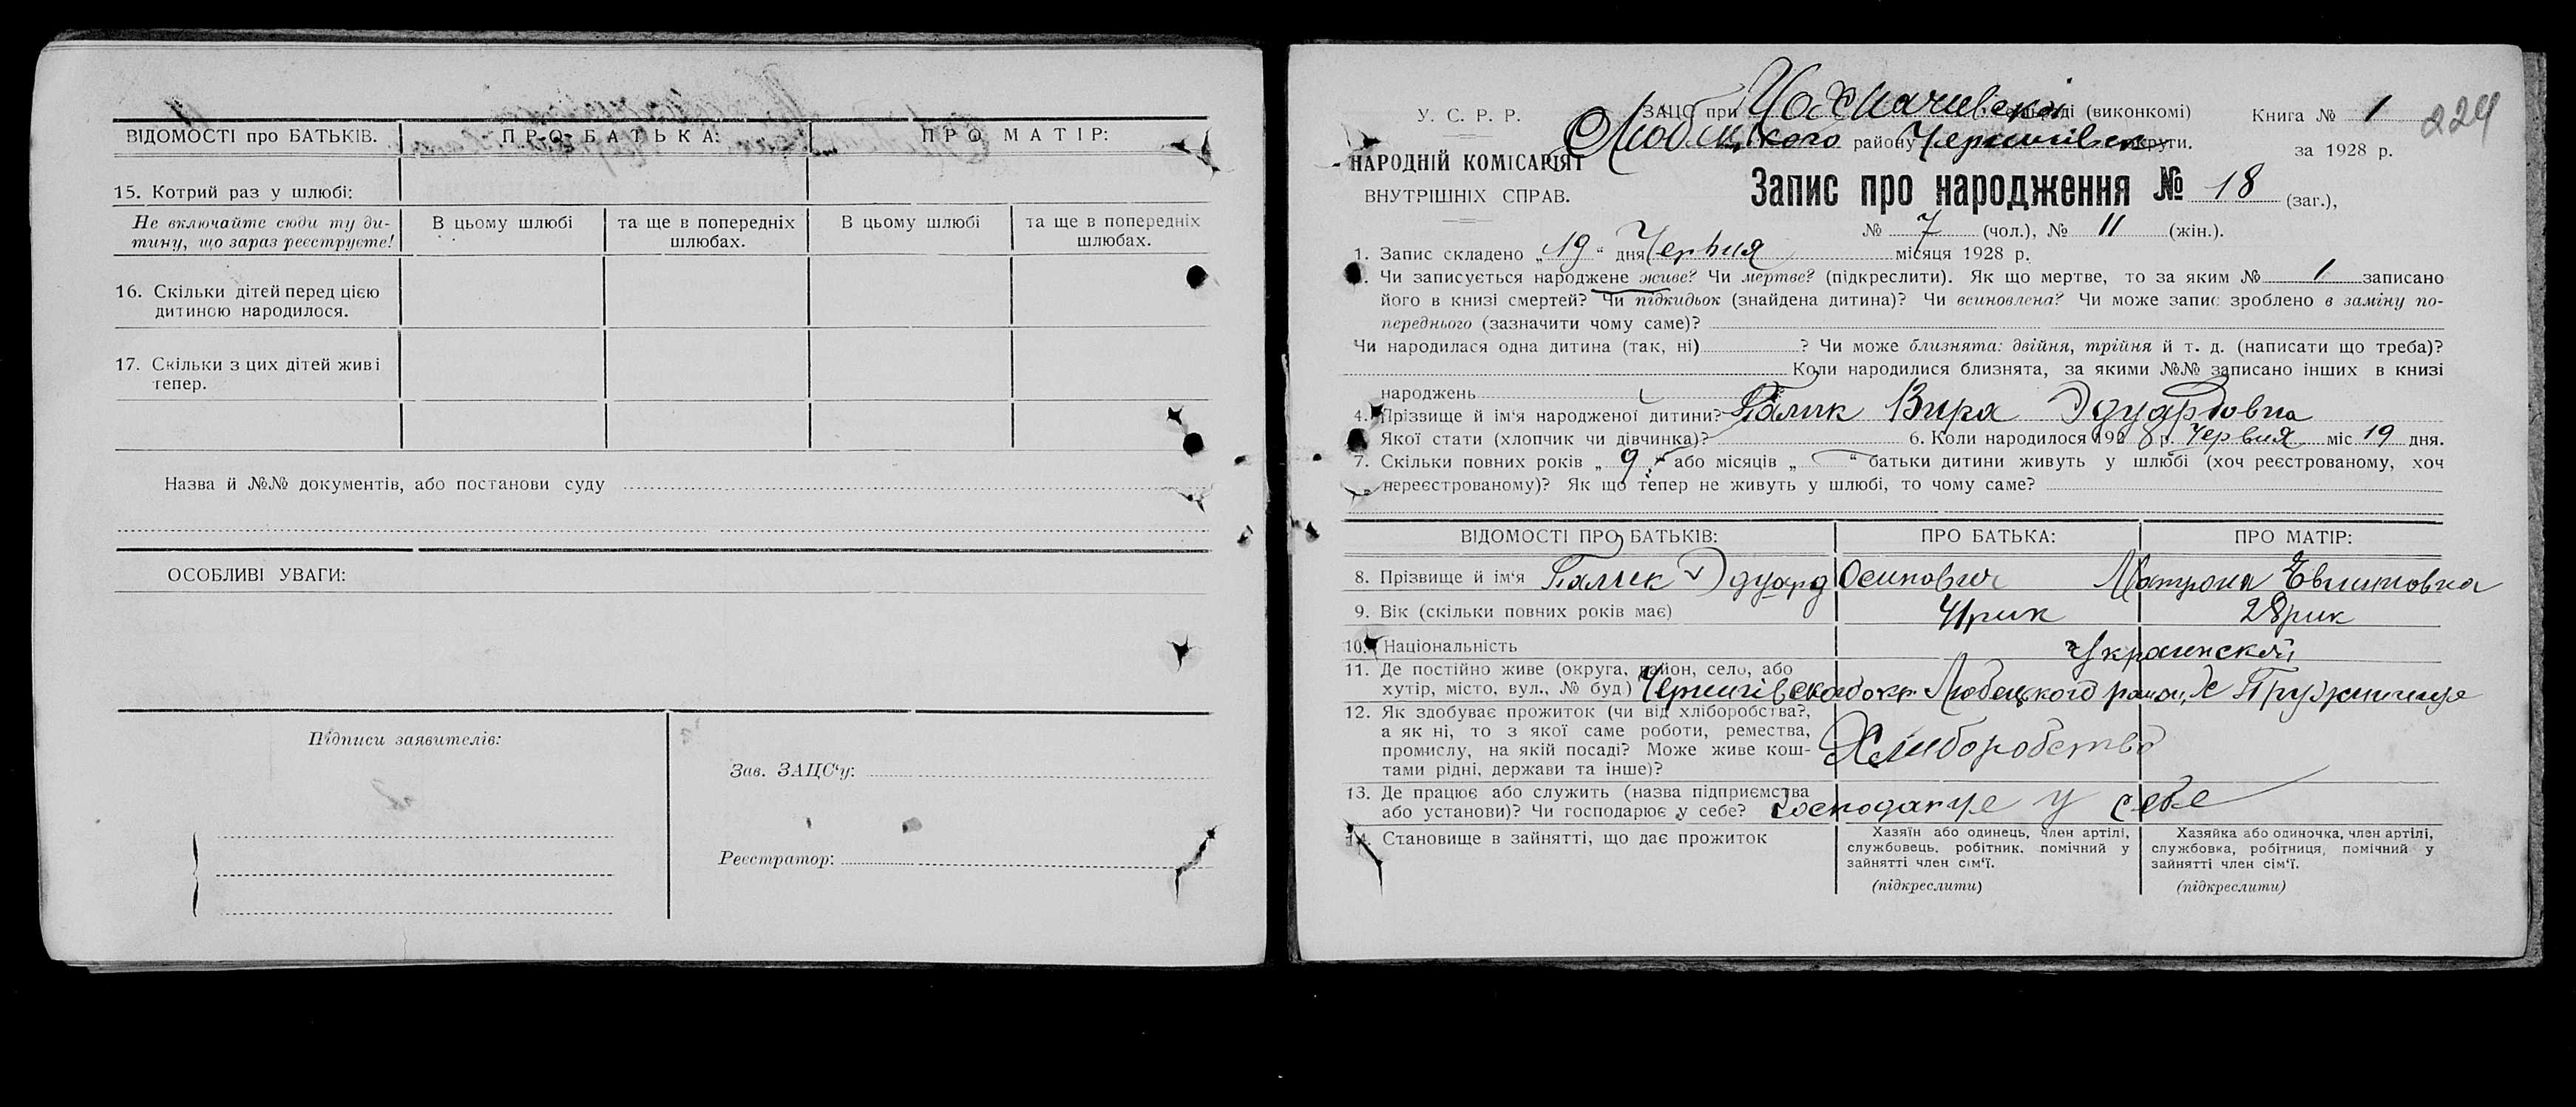 ВІДОМОСТІ про БАТЬКІВ. ПРО БАТЬКА: ПРО МАТІР:
15. Котрий раз у шлюбі:
Не включайте сюди ту ди-
тину, що зараз реєструєте!
В цьому шлюбі
та ще в попередніх
шлюбах.
В цьому шлюбі
та ще в попередніх
шлюбах.
16. Скільки дітей перед цією
дитиною народилося.
17. Скільки з цих дітей живі
тепер.
Назва й №№ документів, або постанови суду
ОСОБЛИВІ УВАГИ:
Підписи заявителів:
Зав. ЗАЦС'у:
Реєстратор:
У. С. Р. Р.
НАРОДНІЙ КОМІСАРІЯТ
ВНУТРІШНІХ СПРАВ.
ЗАЦС при (виконкомі)
Любецького району Чернигівск округи.
Книга № 1
224
за 1928 р.
Запис про народження № 18 (заг.),
№ 7 (чол.), № 11 (жін.).
1. Запис складено „19“ дня Червня місяця 1928 р.
Чи записується народжене живе? Чи мертве? (підкреслити). Як що мертве, то за яким № 1 записано
його в книзі смертей? Чи підкидьок (знайдена дитина)? Чи всиновлена? Чи може запис зроблено в заміну по-
переднього (зазначити чому саме)?
Чи народилася одна дитина (так, ні) ? Чи може близнята: двійня, трійня й т. д. (написати що треба)?
Коли народилися близнята, за якими №№ записано інших в книзі
народжень
4. Прізвище й ім'я народженої дитини? Галик Вира Эдуардовна
Якої стати (хлопчик чи дівчинка)? 6. Коли народилося 1928 р. Червня міс 19 дня.
7. Скільки повних років „9“ або місяців „ “ батьки дитини живуть у шлюбі (хоч реєстрованому, хоч
нереєстрованому)? Як що тепер не живуть у шлюбі, то чому саме?
ВІДОМОСТІ ПРО БАТЬКІВ: ПРО БАТЬКА: ПРО МАТІР:
8. Прізвище й ім'я Галик Эдуард Осипович Матрона
9. Вік (скільки повних років має) 41 рик 28 рик
10. Національність Украинскої
11. Де постійно живе (округа, район, село, або
хутір, місто, вул., № буд) Чернигівской окр Любецкого район, х
12. Як здобуває прожиток (чи від хліборобства?,
а як ні, то з якої саме роботи, ремества,
промислу, на якій посаді? Може живе кош-
тами рідні, держави та інше)?
Хлиборобство
13. Де працює або служить (назва підприємства
або установи)? Чи господарює у себе? Господарує у себе
14. Становище в зайнятті, що дає прожиток
Хазяїн або одинець, член артілі,
службовець, робітник, помічний у
зайнятті член сім'ї.
(підкреслити)
Хазяйка або одиночка, член артілі,
службовка, робітниця, помічний у
зайнятті член сім'ї.
(підкреслити)